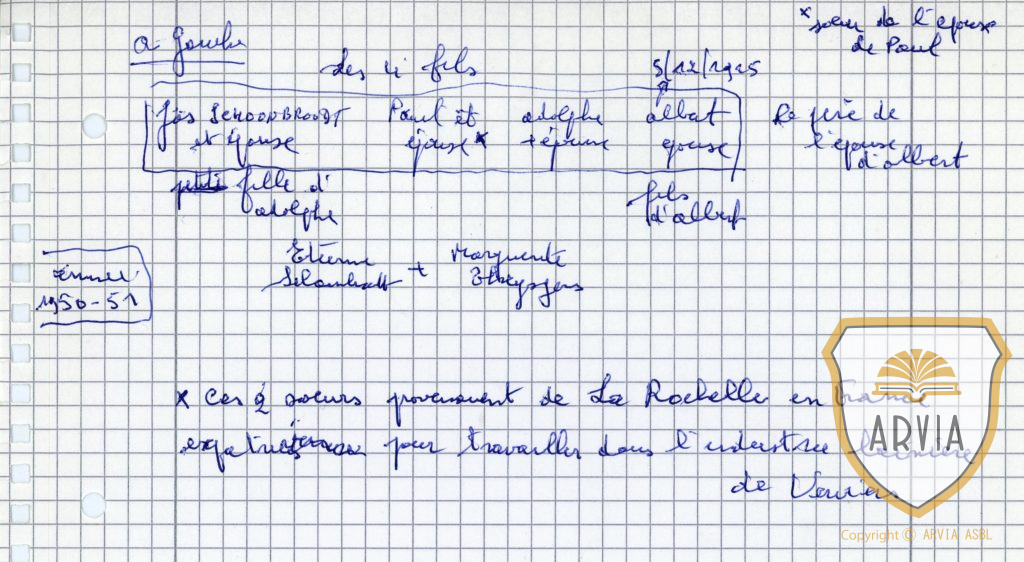 * soeur de l'épouse
de Paul
a Gombe
des 4 fils
5/12/1925
Jos SCHOONBROODT Paul et adolphe albert Le père de
et épouse épouse * + épouse épouse l'épouse
d'albert
petite fille d' fils
adolphe d'albert
Etienne + Marguerite
année
1950-51
* Ces 2 soeurs provenaient de La Rochelle en France
pour travailler dans l'industrie lainière
de Verviers
ARVIA
Copyright © ARVIA ASBL